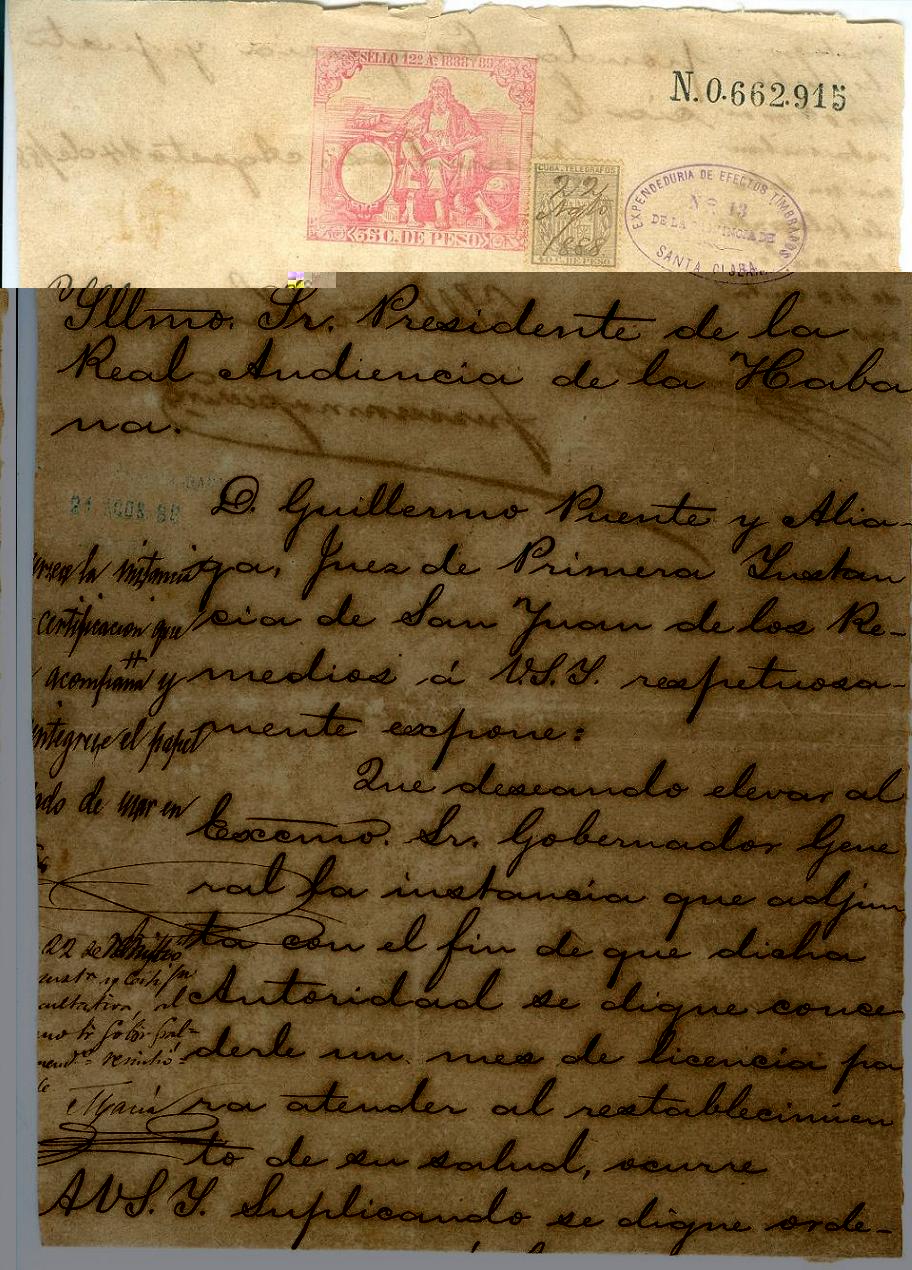 SELLO 12º A.S 1888 Y 89
35 C. DE PESO
N. 0.662.915
CUBA. TELEGRAFOS
22
Agto
1888
40 C. DE PESO
EXPENDEDURIA DE EFECTOS TIMBRADOS
Nº 13
DE LA PROVINCIA DE
SANTA CLARA
Illmo. Sr. Presidente de la
Real Audiencia de la Haba
na.
21 AGOS 88
D. Guillermo Puente y Alia-
ga, Juez de Primera Instan
cia de San Juan de los Re-
medios á V.S.I. respetuosa-
mente expone:
Que deseando elevar al
Excmo. Sr. Gobernador Gene
ral la instancia que adjun
ta con el fin de que dicha
Autoridad se digne conce
derle un mes de licencia pa
ra atender al restablecimien
to de su salud, ocurre
A V.S.I. Suplicando se digne orde-
la instancia
certificacion que
acompaña y
el papel
de mar en
22 de
María